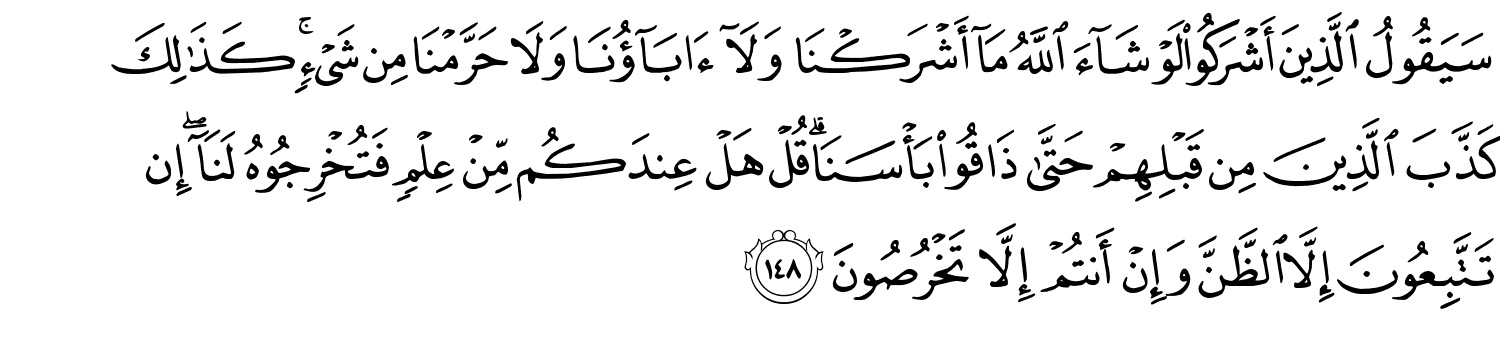 سَيَقُولُ ٱلَّذِينَ أَشْرَكُوا۟ لَوْ شَآءَ ٱللَّهُ مَآ أَشْرَكْنَا وَلَآ ءَابَآؤُنَا وَلَا حَرَّمْنَا مِن شَىْءٍۢ ۚ كَذَٰلِكَ
كَذَّبَ ٱلَّذِينَ مِن قَبْلِهِمْ حَتَّىٰ ذَاقُوا۟ بَأْسَنَا ۗ قُلْ هَلْ عِندَكُم مِّنْ عِلْمٍۢ فَتُخْرِجُوهُ لَنَآ ۖ إِن
تَتَّبِعُونَ إِلَّا ٱلظَّنَّ وَإِنْ أَنتُمْ إِلَّا تَخْرُصُونَ ١٤٨